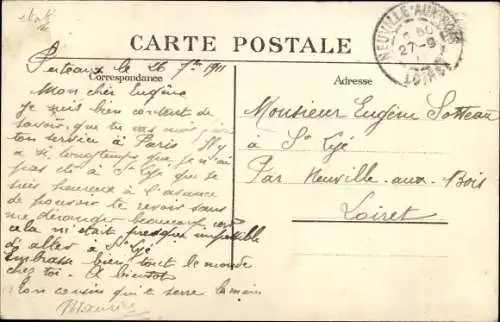 CARTE POSTALE
Correspondance
Adresse
NEUVILLE-AUX-BOIS
27-9
LOIRET
Puteaux le 26 7bre 1911
Mon cher Eugène
Je suis bien content de
savoir que tu vas
ton service à Paris Il y
a si longtemps que je n'ai
pas été à St Lyé que je
suis heureux à l'avance
de pouvoir te revoir sans
me déranger beaucoup, car
cela m'était presque impossible
d'aller à St Lyé
Embrasse bien tout le monde
chez toi. A bientôt
Ton cousin qui te serre la main
Maurice
Monsieur Eugène Sotteau
à St Lyé
Par Neuville-aux-Bois
Loiret